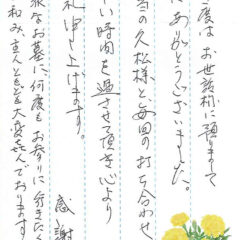 度は お世話様に預りまして
にありがとうございました。
当の久松様と毎回の打ち合わせ
い時間を過させて頂き心より
礼申し上げます。
派なお墓に、何度もお参りに行きたく
和み、主人ともども大変喜んでおります
感謝